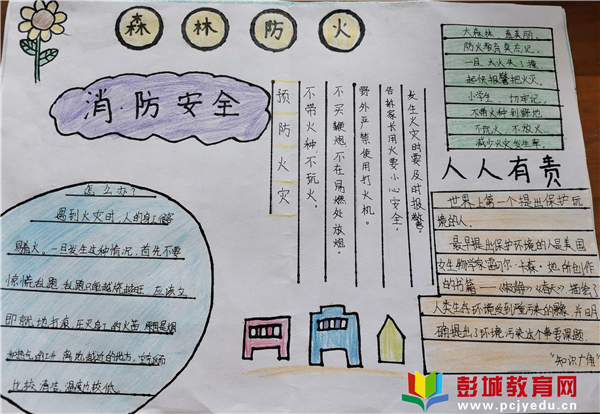 森林防火
消防安全
预防火灾
不带火种不玩火。
不买鞭炮,不在易燃处放炮。
野外严禁使用打火机。
告诉家长用火要小心安全。
发生火灾时要及时报警。
大森林,真美丽。
防火教育莫忘记。
一旦大火来了
赶快报警把火灭。
小学生,切牢记。
不带火种到野地
不玩火,不放火。
减少火灾发生率
人人有责
世界上第一个提出保护
境的人。
最早提出保护环境的人是美国
女生物学家雷切尔·卡森。她所创作
的书篇——《寂静的春天》描绘了
人类生存环境受到污染的景象,并明
确提出了环境污染这个事专课题。
"知识广角"
怎么办?
遇到火灾时,人的身上
着火。一旦发生这种情况,首先不要
惊慌乱跑,乱跑只能越烧越旺,应该立
即就地打滚,压灭身上的火苗
比较清洁,温度较低
彭城教育网
www.pcjyedu.cn